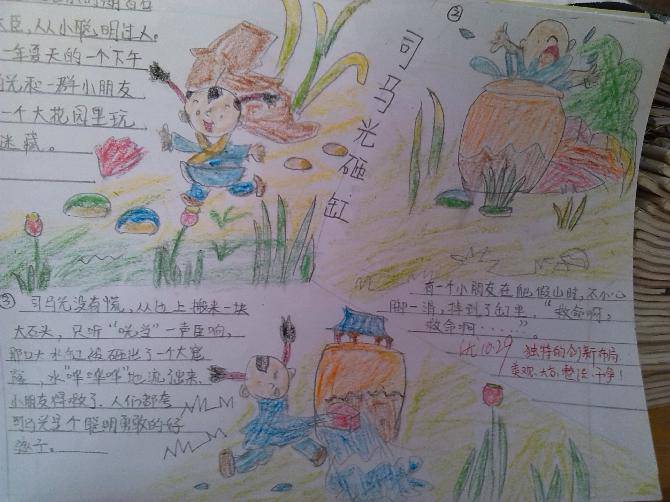 大臣,从小聪明过人。
一年夏天的一个下午
马光和一群小朋友
一个大花园里玩
迷藏。
司马光砸缸
②
有一个小朋友在爬假山时,不小心
脚一滑,掉到了缸里,“救命啊,
救命啊······”。
10.29
独特的创新布局
美观、大方,整洁、干净!
③
司马光没有慌,从地上搬来一块
大石头,只听“咣当”一声巨响,
那口大水缸被砸出了一个大窟
窿,水“哗哗哗”地流出来,
小朋友得救了,人们都夸
司马光是个聪明勇敢的好
孩子。